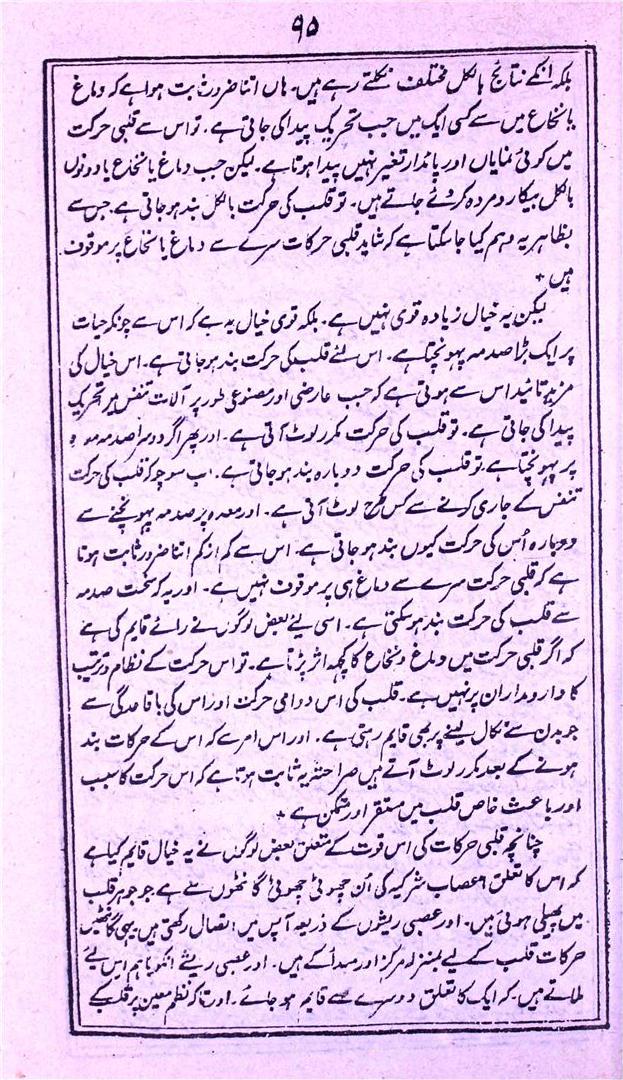 ۹۵
بلکہ انکے نتائج بالکل مختلف نکلتے رہے ہیں۔ ہاں اتنا ضرور ثابت ہوا ہے کہ دماغ
یا نخاع میں سے کسی ایک میں جب تحریک پیدا کی جاتی ہے۔ تو اس سے قلبی حرکت
میں کوئی نمایاں اور پائدار تغیر نہیں پیدا ہوتا ہے۔ لیکن جب دماغ یا نخاع یا دونوں
بالکل بیکار و مردہ کر دئے جاتے ہیں۔ تو قلب کی حرکت بالکل بند ہو جاتی ہے۔ جس سے
بظاہر یہ وہم کیا جا سکتا ہے کہ شاید قلبی حرکات سرے سے دماغ یا نخاع پر موقوف
ہیں +
لیکن یہ خیال زیادہ قوی نہیں ہے۔ بلکہ قوی خیال یہ ہے کہ اس سے چونکہ حیات
پر ایک بڑا صدمہ پہونچتا ہے۔ اس لئے قلب کی حرکت بند ہو جاتی ہے۔ اس خیال کی
مزید تائید اس سے ہوتی ہے کہ جب عارضی اور مصنوعی طور پر آلات تنفس میں تحریک
پیدا کی جاتی ہے۔ تو قلب کی حرکت مکرر لوٹ آتی ہے۔ اور پھر اگر دوسرا صدمہ معدہ
پر پہونچتا ہے تو قلب کی حرکت دوبارہ بند ہو جاتی ہے۔ اب سوچو کہ قلب کی حرکت
تنفس کے جاری کرنے سے کس طرح لوٹ آتی ہے۔ اور معدہ پر صدمہ پہونچنے سے
دوبارہ اُس کی حرکت کیوں بند ہو جاتی ہے۔ اس سے کم از کم اتنا ضرور ثابت ہوتا
ہے کہ قلبی حرکت سرے سے دماغ ہی پر موقوف نہیں ہے۔ اور یہ کہ سخت صدمہ
سے قلب کی حرکت بند ہو سکتی ہے۔ اسی لیے بعض لوگوں نے رائے قایم کی ہے
کہ اگر قلبی حرکت میں دماغ و نخاع کا کچھ اثر پڑتا ہے۔ تو اس حرکت کے نظام و ترتیب
کا دار و مدار ان پر نہیں ہے۔ قلب کی اس دوامی حرکت اور اس کی باقاعدگی سے
جو بدن سے نکال لینے پر بھی قایم رہتی ہے۔ اور اس امر سے کہ اس کے حرکات بند
ہونے کے بعد مکرر لوٹ آتے ہیں صراحتہً یہ ثابت ہوتا ہے کہ اس حرکت کا سبب
اور باعث خاص قلب میں مستقر اور متمکن ہے +
چنانچہ قلبی حرکات کی اس قوت کے متعلق بعض لوگوں نے یہ خیال قایم کیا ہے
کہ اس کا تعلق اعصاب شرکیہ کی اُن چھوٹی چھوٹی گانٹھوں سے ہے جو جوہر قلب
میں پھیلی ہوئی ہیں۔ اور عصبی ریشوں کے ذریعہ آپس میں اتصال رکھتی ہیں یہی گانٹھیں
حرکات قلب کے لیے بمنزلہ مرکز اور مبدأ کے ہیں۔ اور عصبی ریشے انکو باہم اس لیے
ملاتے ہیں۔ کہ ایک کا تعلق دوسرے سے قایم ہو جائے۔ اور تاکہ نظم معین پر قلب کے